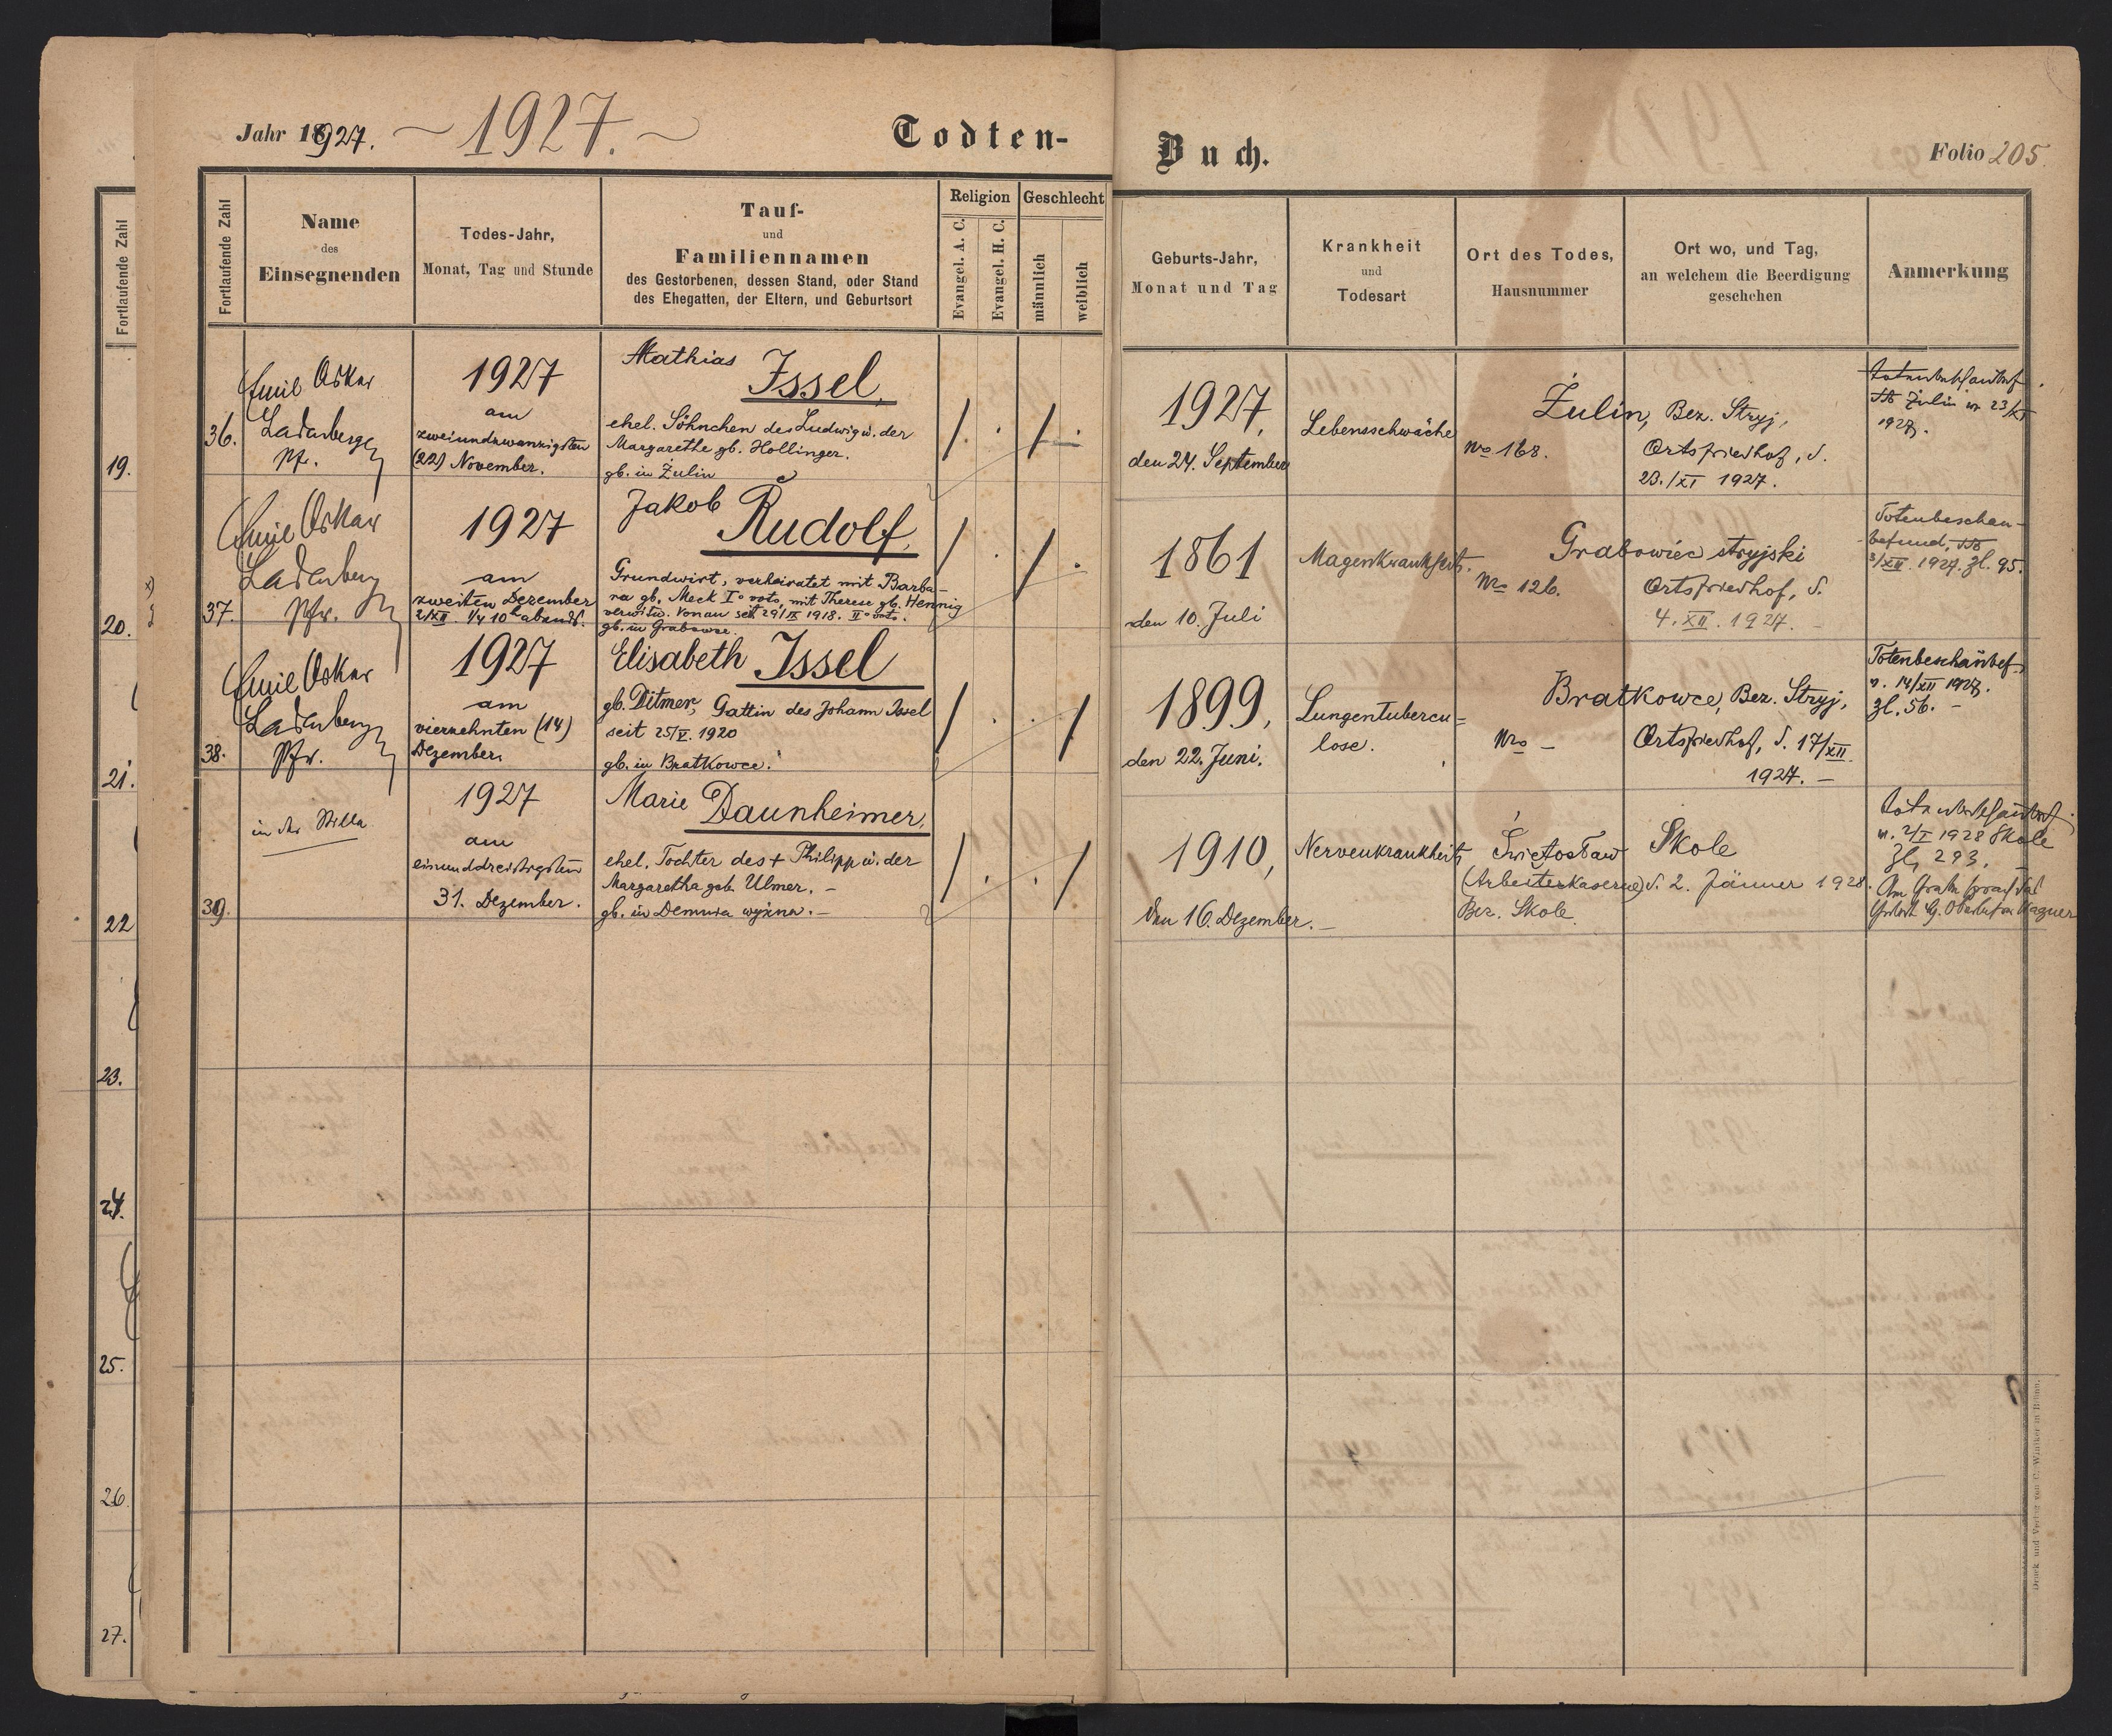 Jahr 1927. ~ 1927. ~ Todten-
Buch. Folio 205.
Fortlaufende Zahl
Fortlaufende Zahl
Name
des
Einsegnenden
Todes-Jahr,
Monat, Tag und Stunde
Tauf-
und
Familiennamen
des Gestorbenen, dessen Stand, oder Stand
des Ehegatten, der Eltern, und Geburtsort
Religion
Evangel. A. C.
Evangel. H. C.
Geschlecht
männlich
weiblich
Geburts-Jahr,
Monat und Tag
Krankheit
und
Todesart
Ort des Todes,
Hausnummer
Ort wo, und Tag,
an welchem die Beerdigung
geschehen
Anmerkung
36.
Emil Oskar
Ladenberger
Pf.
1927
am
zweiundzwanzigsten
(22) November.
Mathias
Issel,
ehel. Söhnchen des Ludwig u. der
Margarethe gb. Hollinger.
gb. in Żulin
1927,
den 24. September
Lebensschwäche
Żulin, Bez. Stryj,
No 168.
Ortsfriedhof, d.
23./XI 1927.
Żulin v. 23/XI
1927.
37.
Emil Oskar
Ladenberger
Pfr.
1927
am
zweiten Dezember
2/XII. 1/4 10h abends.
Jakob
Rudolf,
Grundwirt, verheiratet mit Barba-
ra gb. Meck Io voto, mit Therese gb. Hennig
verwitw. Vonau seit 29/IX 1918. IIo voto.
gb. in Grabowce.
1861
den 10. Juli
Magenkrankheit.
Grabowiec stryjski
Nro 126.
Ortsfriedhof, d.
4. XII. 1927.
Totenbeschau-
befund,
3/XII. 1927. Zl. 95.
38.
Emil Oskar
Ladenberger
Pfr.
1927
am
vierzehnten (14)
Dezember.
Elisabeth Issel
gb. Ditmer, Gattin des Johann Issel
seit 25/V. 1920
gb. in Bratkowce.
1899,
den 22. Juni.
Lungentubercu=
lose.
Bratkowce, Bez. Stryj,
Nro –
Ortsfriedhof, d. 17/XII.
1927. –
Totenbeschaubef.
v. 14/XII 1927.
Zl. 56. –
39.
in der Stille
1927
am
einunddreissigsten
31. Dezember.
Marie Daunheimer,
ehel. Tochter des + Philipp u. der
Margaretha geb. Ulmer. –
gb. in Demnia wyżna. –
1910,
den 16. Dezember. –
Nervenkrankheit,
Świętosław
(Arbeiterkaserne)
Bez. Skole
Skole
d. 2. Jänner 1928.
v. 2/I 1928 Skole
Zl. 293.
Am Grabe sprach das
Wagner
19.
20.
21.
22
23.
24.
25.
26.
27.
Druck und Verlag von C. Winiker in Brünn.